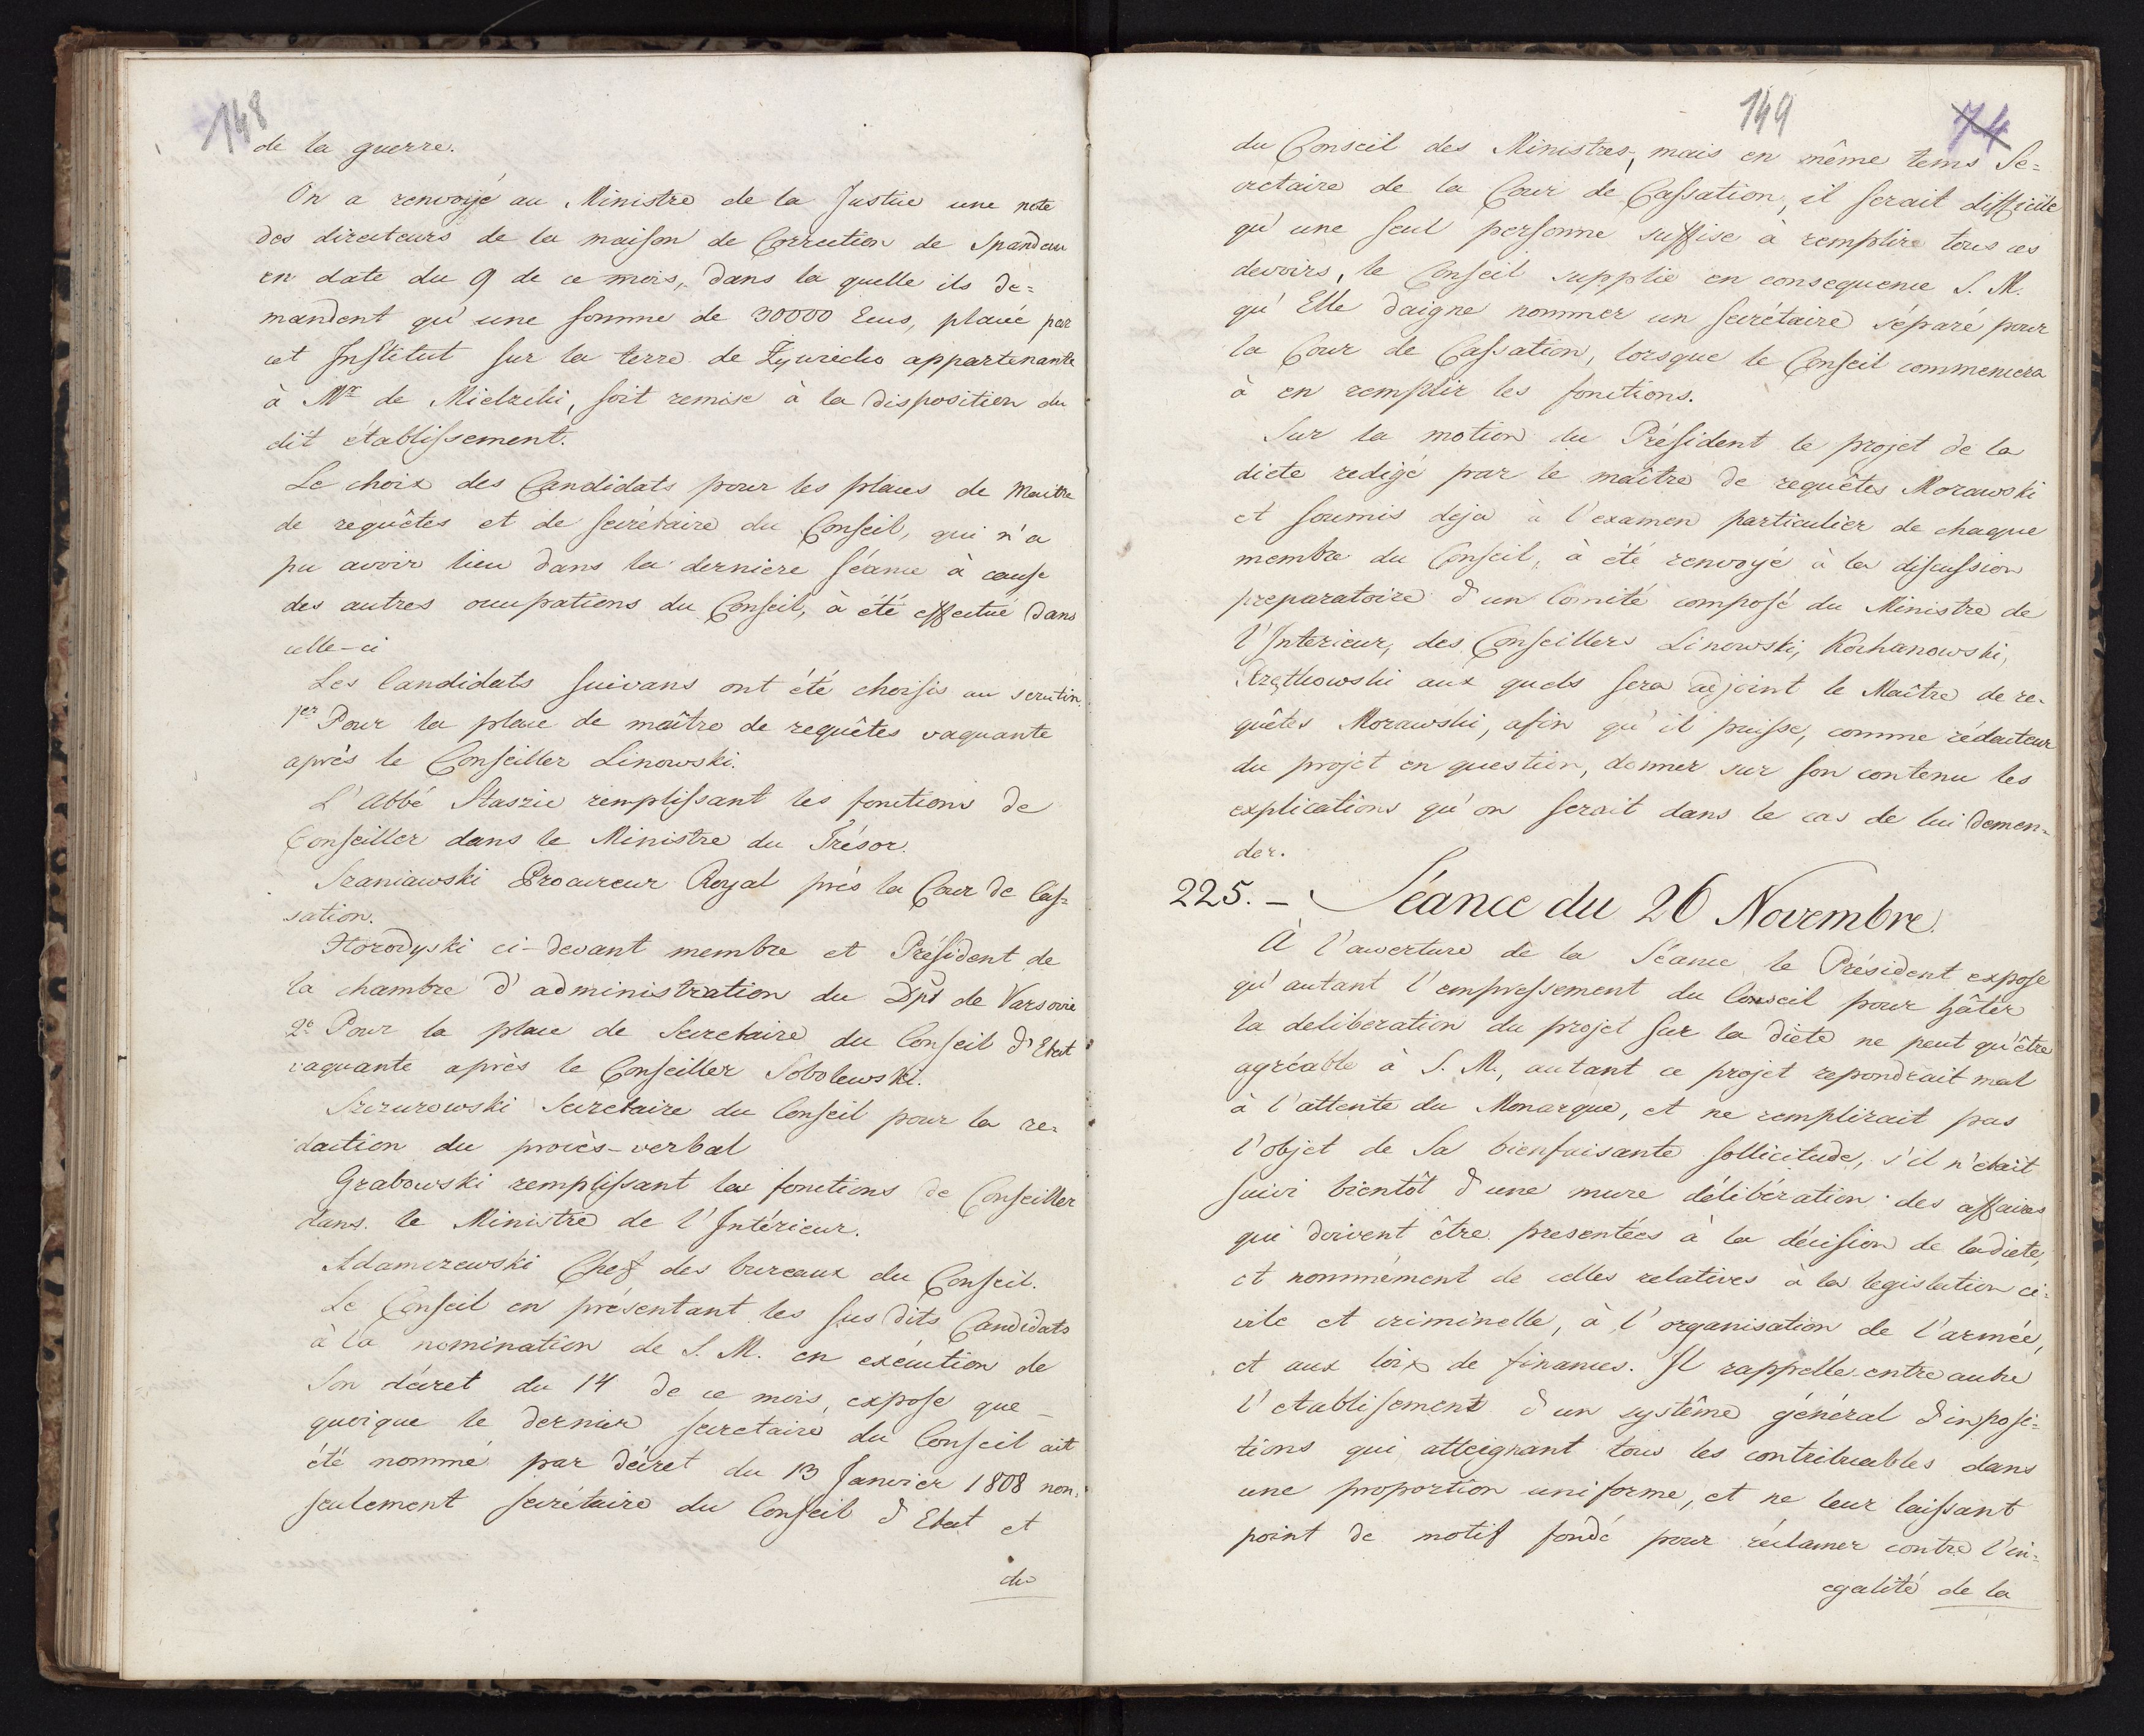 148
de la guerre.
On a renvoyé au Ministre de la Justice une note
des directeurs de la maison de Correction de Spandau
en date du 9 de ce mois, dans la quelle ils de=
mandent qu'une somme de 30000 Ecus, placée par
cet Institut sur la terre de appartenante
à Mr de Mielzihi, soit remise à la disposition du
dit établissement.
Le choix des Candidats pour les places de Maitre
de requêtes et de secrétaire du Conseil, qui n'a
pu avoir lieu dans la derniere séance à cause
des autres occupations du Conseil, à été effectué dans
celle-ci
Les Candidats suivans ont été choisis au scrutin.
1er Pour la place de maître de requêtes vaquante
après le Conseiller Linowski.
L'Abbé Staszic remplissant les fonctions de
Conseiller dans le Ministre du Trésor.
Szaniawski Procureur Royal près la Cour de Cas=
sation.
Horodyski ci-devant membre et Président de
la chambre d'administration du Dpt de Varsovie
2e Pour la place de Secretaire du Conseil d'Etat
vaquante après le Conseiller Sobolewski.
Szczurowski Secretaire du Conseil pour la re=
daction du procès-verbal
Grabowski remplissant les fonctions de Conseiller
dans le Ministre de l'Intérieur.
Adamczewski Chef des bureaux du Conseil.
Le Conseil en présentant les sus dits Candidats
à la nomination de S. M. en exécution de
Son décret du 14 de ce mois, expose que
quoique le dernier secretaire du Conseil ait
été nommé par décret du 13 Janvier 1808 non=
seulement secrétaire du Conseil d'Etat et
du
149
74
du Conseil des Ministres, mais en même tems Se=
crétaire de la Cour de Cassation, il serait difficile
qu'une seul personne suffise à remplire tous ces
devoirs, le Conseil supplie en consequence S. M.
qu'Elle daigne nommer un secrétaire séparé pour
la Cour de Cassation, lorsque le Conseil commencera
à en remplir les fonctions.
Sur la motion du Président le projet de la
diete redigé par le maître de requêtes Morawski
et soumis deja à l'examen particulier de chaque
membre du Conseil, à été renvoyé à la discussion
preparatoire d'un Comité composé du Ministre de
l'Interieur, des Conseillers Linowski, Kochanowski,
aux quels sera adjoint le Maître de re=
quêtes Morawski, afin qu'il puisse, comme rédacteur
du projet en question, donner sur son contenu les
explications qu'on serait dans le cas de lui demen=
der.
225. - Séance du 26 Novembre.
À l'auverture de la Séance le Président expose
qu'autant l'empressement du Conseil pour hâter
la deliberation du projet sur la diete ne peut qu'être
agréable à S. M., autant ce projet repondrait mal
à l'attente du Monarque, et ne remplirait pas
l'objet de Sa bienfaisante sollicitude, s'il n'etait
suivi bientôt d'une mure délibération des affaires
qui doivent être presentées à la décision de la diete,
et nommément de celles relatives à la legislation ci=
vile et criminelle, à l'organisation de l'armée,
et aux loix de finances. Il rappelle entre autre
l'etablisement d'un système général d'imposi=
tions qui atteignant tous les contribuables dans
une proportion uniforme, et ne leur laissant
point de motif fondé pour réclamer contre l'in=
egalité de la